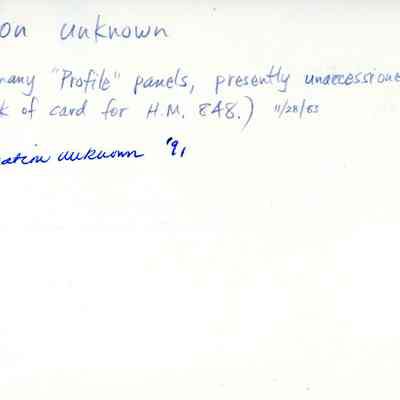 on unknown
many "Profile" panels, presently unaccessione
k of card for H.M. 848.) 11/28/83
ation unknown '91